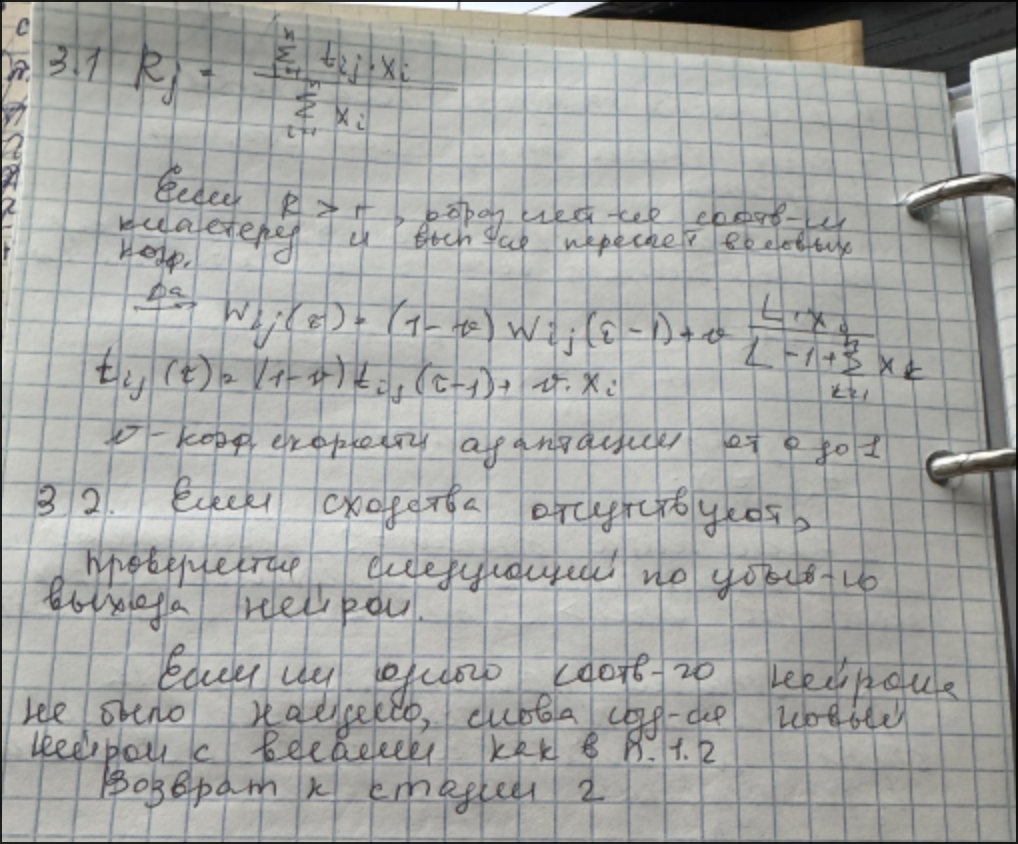 3.1 Rj = Σ tij · xi / Σ xi
i=1
Если R > r, образ счет-ся соотв-м
кластеру и вып-ся пересчет весовых
коэф.
Да → Wij(τ) = (1-v) Wij(τ-1) + v L·xi / L-1+Σ xk
k=1
tij(τ) = (1-v) tij(τ-1) + v·xi
v - коэф. скорости адаптации от 0 до 1
3 2. Если сходства отсутствуют,
проверяется следующий по убыв-ю
выхода нейрон.
Если ни одного соотв-го нейрона
не было найдено, снова созд-ся новый
нейрон с весами как в п. 1.2
Возврат к стадии 2